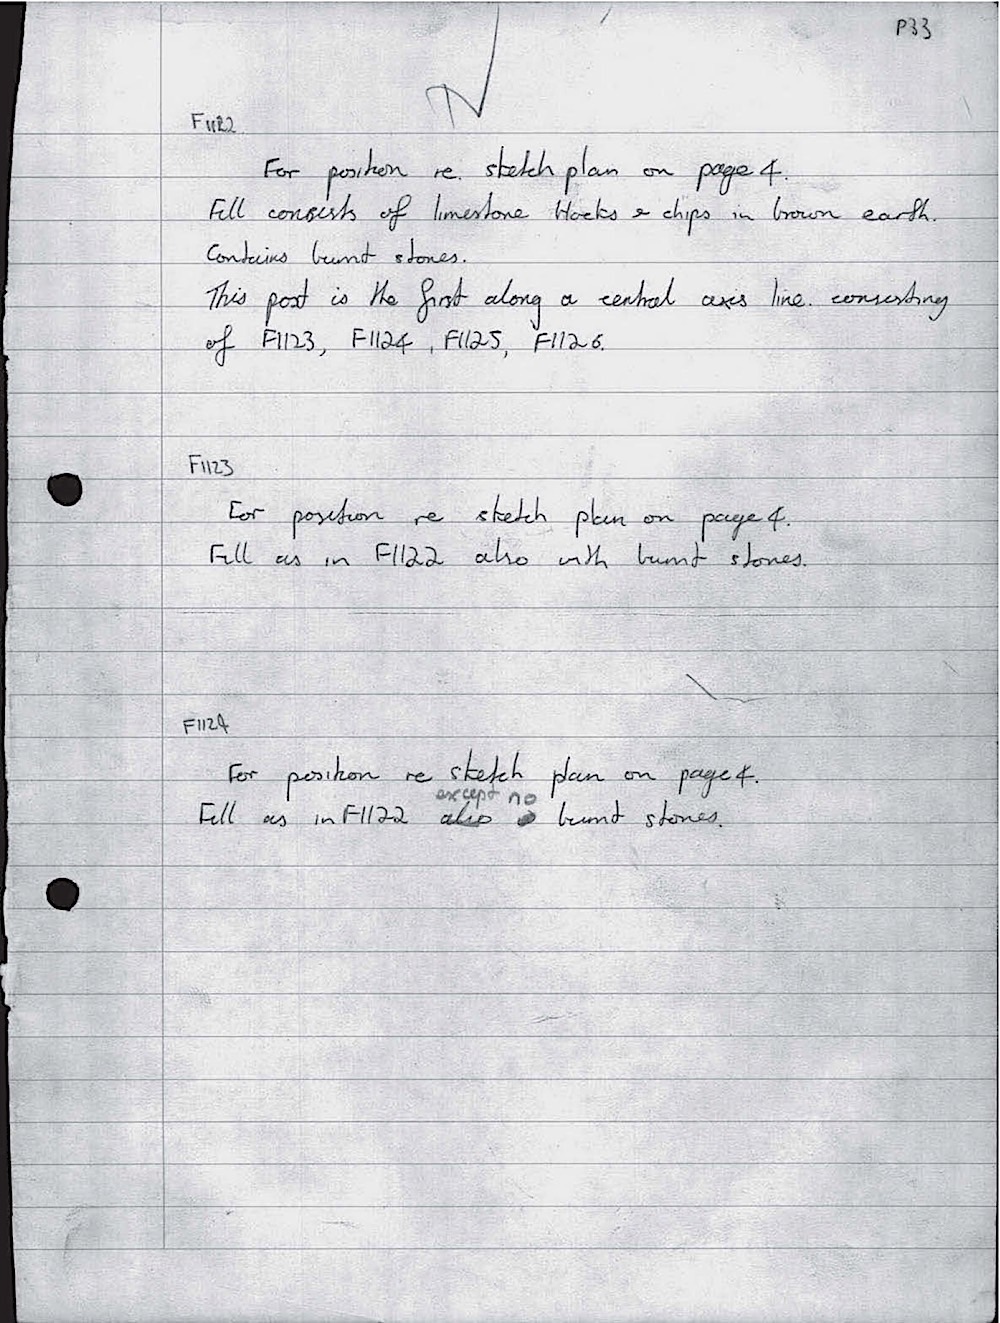 P33
F1122
For position re. sketch plan on page 4.
Fill consists of limestone blocks & chips in brown earth.
Contains burnt stones.
This post is the first along a central axis line. consisting
of F1123, F1124, F1125, F1126.
F1123
For position re sketch plan on page 4.
Fill as in F1122 also with burnt stones.
F1124
For position re sketch plan on page 4.
except no
Fill as in F1122 also burnt stones.